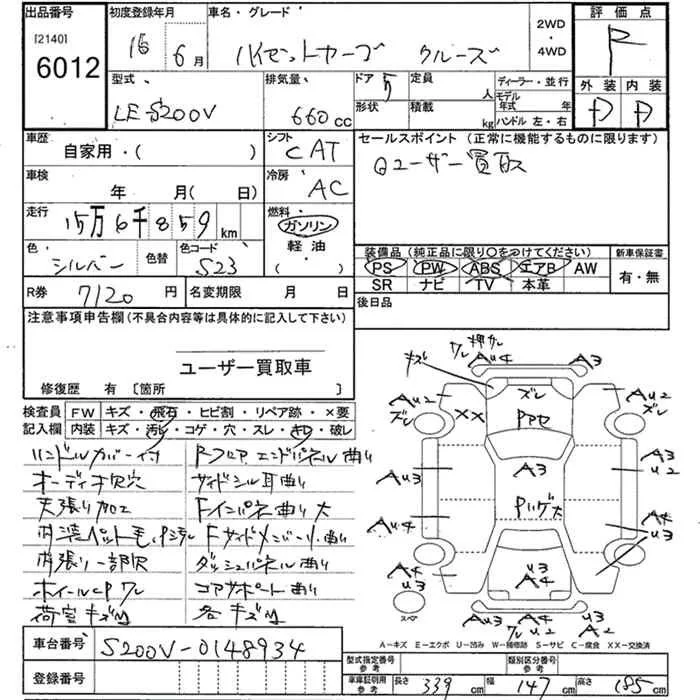 出品番号
[2140]
6012
初度登録年月
16 6月
車名・グレード
ハイゼットカーゴ クルーズ
2WD
・
4WD
評価点
R
外装 内装
D D
型式
LE-S200V
排気量
660cc
ドア 5
形状
定員 人
積載 kg
ディーラー・並行
モデル年式 年
ハンドル 左・右
車歴
自家用・( )
シフト
CAT
セールスポイント (正常に機能するものに限ります)
ユーザー買取
車検
年 月(日)
冷房
AC
走行
15万6千859km
燃料
ガソリン
軽油・
( )
色
シルバー
色替
色コード
S23
装備品(純正品に限り○をつけてください)
PS PW ABS エアB AW
SR ナビ TV 本革
新車保証書
有・無
R券 7120円
名変期限 月 日
後日品
注意事項申告欄(不具合内容等は具体的に記入して下さい)
ユーザー買取車
修復歴 有〔箇所 〕
検査員記入欄
FW キズ・飛石・ヒビ割・リペア跡・×要
内装 キズ・汚レ・コゲ・穴・スレ・キレ・破レ
ハンドルカバー付
オーディオ欠穴
天張り加工
内張り一部欠
ホイールCPワレ
荷室キズM
Rフロア エンドパネル曲り
サイドシル耳曲り
Fインパネ曲り大
Fサイドメンバー曲り
ダッシュパネル曲り
コアサポート曲り
各キズM
キズ
ワレ 押サレ
AU4
A3
AU2
ズレ
××
ズレ
Pアセ
AU2
ズレ
A3
AU3
A3
U2
Pハゲ大
AU4
A4
U3
U3
A4
A4
U3
スペア
AU3
A4
A3
ワレ U2
A2
A－キズ E－エクボ U－凹み W－補修跡 S－サビ C－腐食 XX－交換済
車台番号 S200V-0148934
登録番号
型式指定番号
参考
類別区分番号
参考
車庫証明用
参考
長さ 339cm 幅 147cm 高さ 185cm